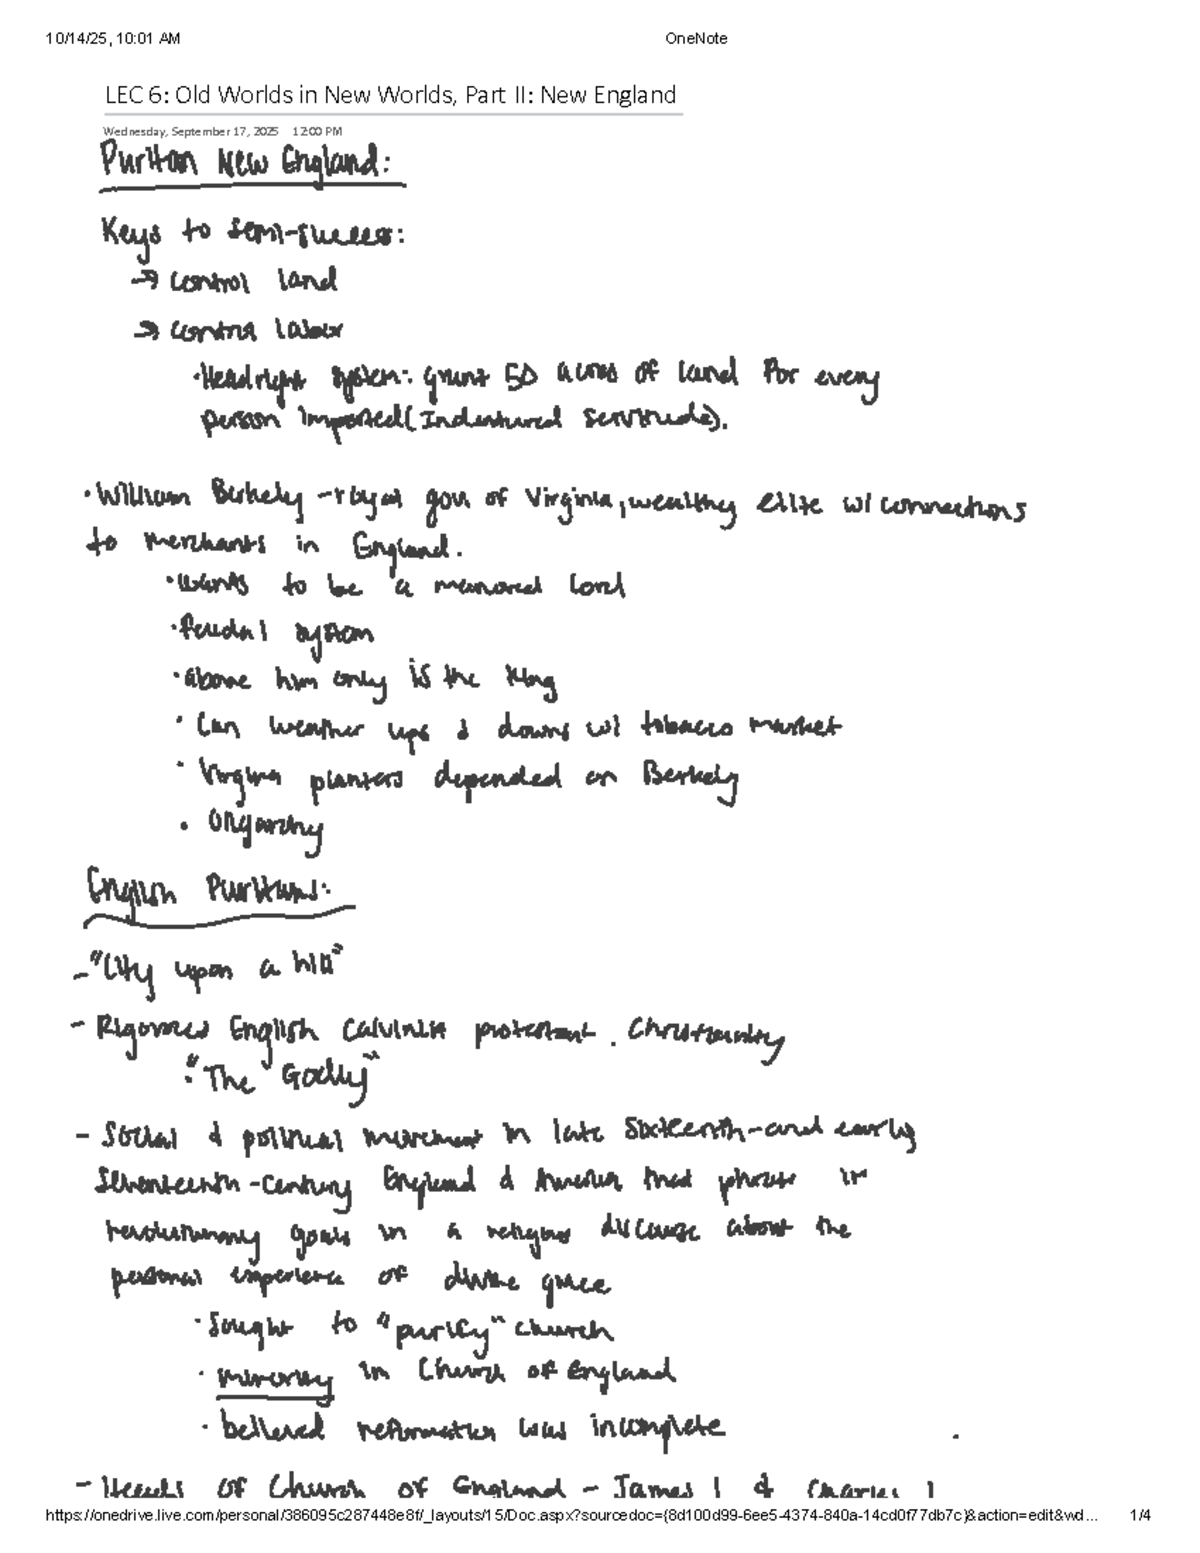 10/14/25, 10:01 AM OneNote
LEC 6: Old Worlds in New Worlds, Part II: New England
Wednesday, September 17, 2025 12:00 PM
Puritan New England:
Keys to semi-success:
→ control land
→ control labour
• Headright system: grant 50 acres of land for every
person imported (Indentured Servitude).
• William Berkely - royal gov of Virginia, wealthy elite w/ connections
to merchants in England.
• wants to be a manored lord
• feudal system
• above him only is the king
• Can weather ups & downs w/ tobacco market
• Virginia planters depended on Berkely
• Oligarchy
English Puritans:
- "City upon a hill"
- Rigorous English Calvinist protestant. Christianity
• "The Godly"
- Social & political movement in late Sixteenth-and early
Seventeenth-century England & America that phrase in
revolutionary goals in a religious discourse about the
personal experience of divine grace
• Sought to "purify" church
• minority in Church of England
• believed reformation was incomplete
- Heads of Church of England - James I & Charles I
https://onedrive.live.com/personal/386095c287448e8f/_layouts/15/Doc.aspx?sourcedoc={8d100d99-6ee5-4374-840a-14cd0f77db7c}&action=edit&wd... 1/4